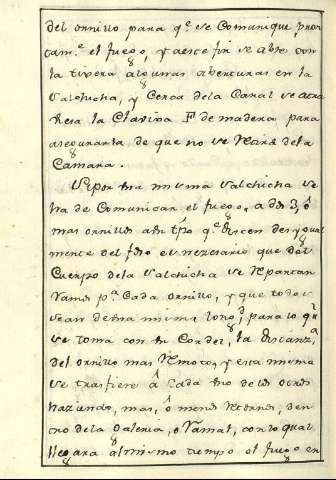 del ornillo para q.e se Comunique pron
tam.te el fuego, y a este fin se abre con
la tixera algunas aberturas en la
Salchicha, y Cerca dela Canal se atra
biesa la Clavixa F de madera para
asegurarla de que no se Retire dela
Camara.
Si por una misma Salchicha se
ha de Comunicar el fuego, a dos 3, ô
mas ornillos a un tpô q.e disten desygual
mente del foco es necesario que del
Cuerpo dela Salchicha se Repartan
Ramas p.a Cada ornillo, y que todos
sean de una misma long.d para lo q.l
se toma con un Cordel, la distanz.a
del ornillo mas Remoto, y esta misma
se trasfiere â Cada uno de los otros
haziendo, mas, ô menos Retornos, den
tro dela Galeria, o Ramal, con lo qual
llegara al mismo tiempo el fuego en